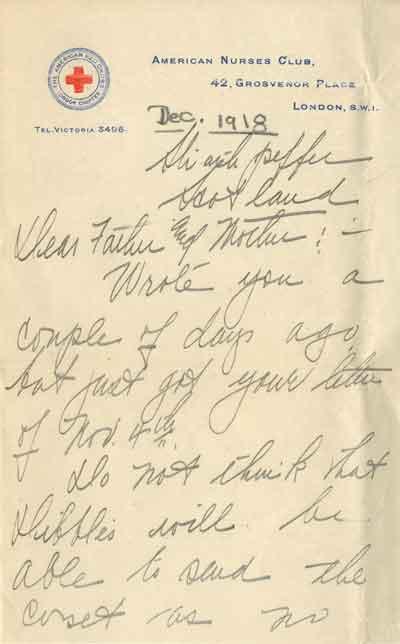 THE AMERICAN RED CROSS
LONDON CHAPTER
AMERICAN NURSES CLUB,
42, GROSVENOR PLACE
LONDON, S.W.1.
TEL. VICTORIA 3496.
Dec. 1918
Scotland
Dear Father and Mother: –
Wrote you a
couple of days ago
but just got your letter
of Nov. 4th.
Do not think that
will be
able to send the
corset as no